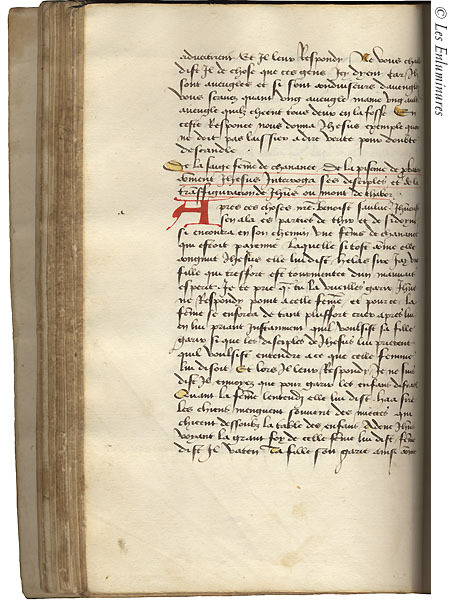 aduertirent Et Il leur Respondy Ne vous chaille
dist Il de chose que ces gens Icy dyent Car Ilz
sont aueugles et si sont conduiseurs daueugles
vous scauez quant vng aueugle maine vng autre
aueugle quilz chieent tous deux en la fosse En
ceste Responce nous donna Jhesus exemple que
ne doit pas laissier a dire verite pour doubte
descandle
De la sainte feme de chananee De la piscine de
coment Jhesus Interoga ses disciples et de la
trasfiguration de Jhus ou mont de thabor
Apres ces choses mr benoist sauluer Jhesus
sen ala es parties de thir et de sidoine
si encontra en son chemin vne feme de chananee
qui estoit paienne Laquelle si tost come elle
congnut Jhesus elle luy dist helas sire Jay vne
fille qui tresfort est tourmentee dun mauuait
esperit Je te prie que tu la vueilles garir Jhus
ne Respondy point a celle feme et pource la
feme se enforca de tant plus fort crier apres luy
en luy priant Instament quil voulsist sa fille
garir si que les disciples de Jhesus luy prierent
quil voulsist entendre a ce que celle femme
luy disoit Et lors Il leur Respondy Je ne suis
dist Il enuoyez que pour garir les enfans disrael
Quant la feme lentendy elle luy dist haa sire
les chiens menguent souuent des miettes qui
chieent dessoubz la table des enfans Adonc Jhus
voyant la grant foy de celle feme luy dist feme
dist Il vaten Ta fille soit garie ainsi come
© Les Enluminures